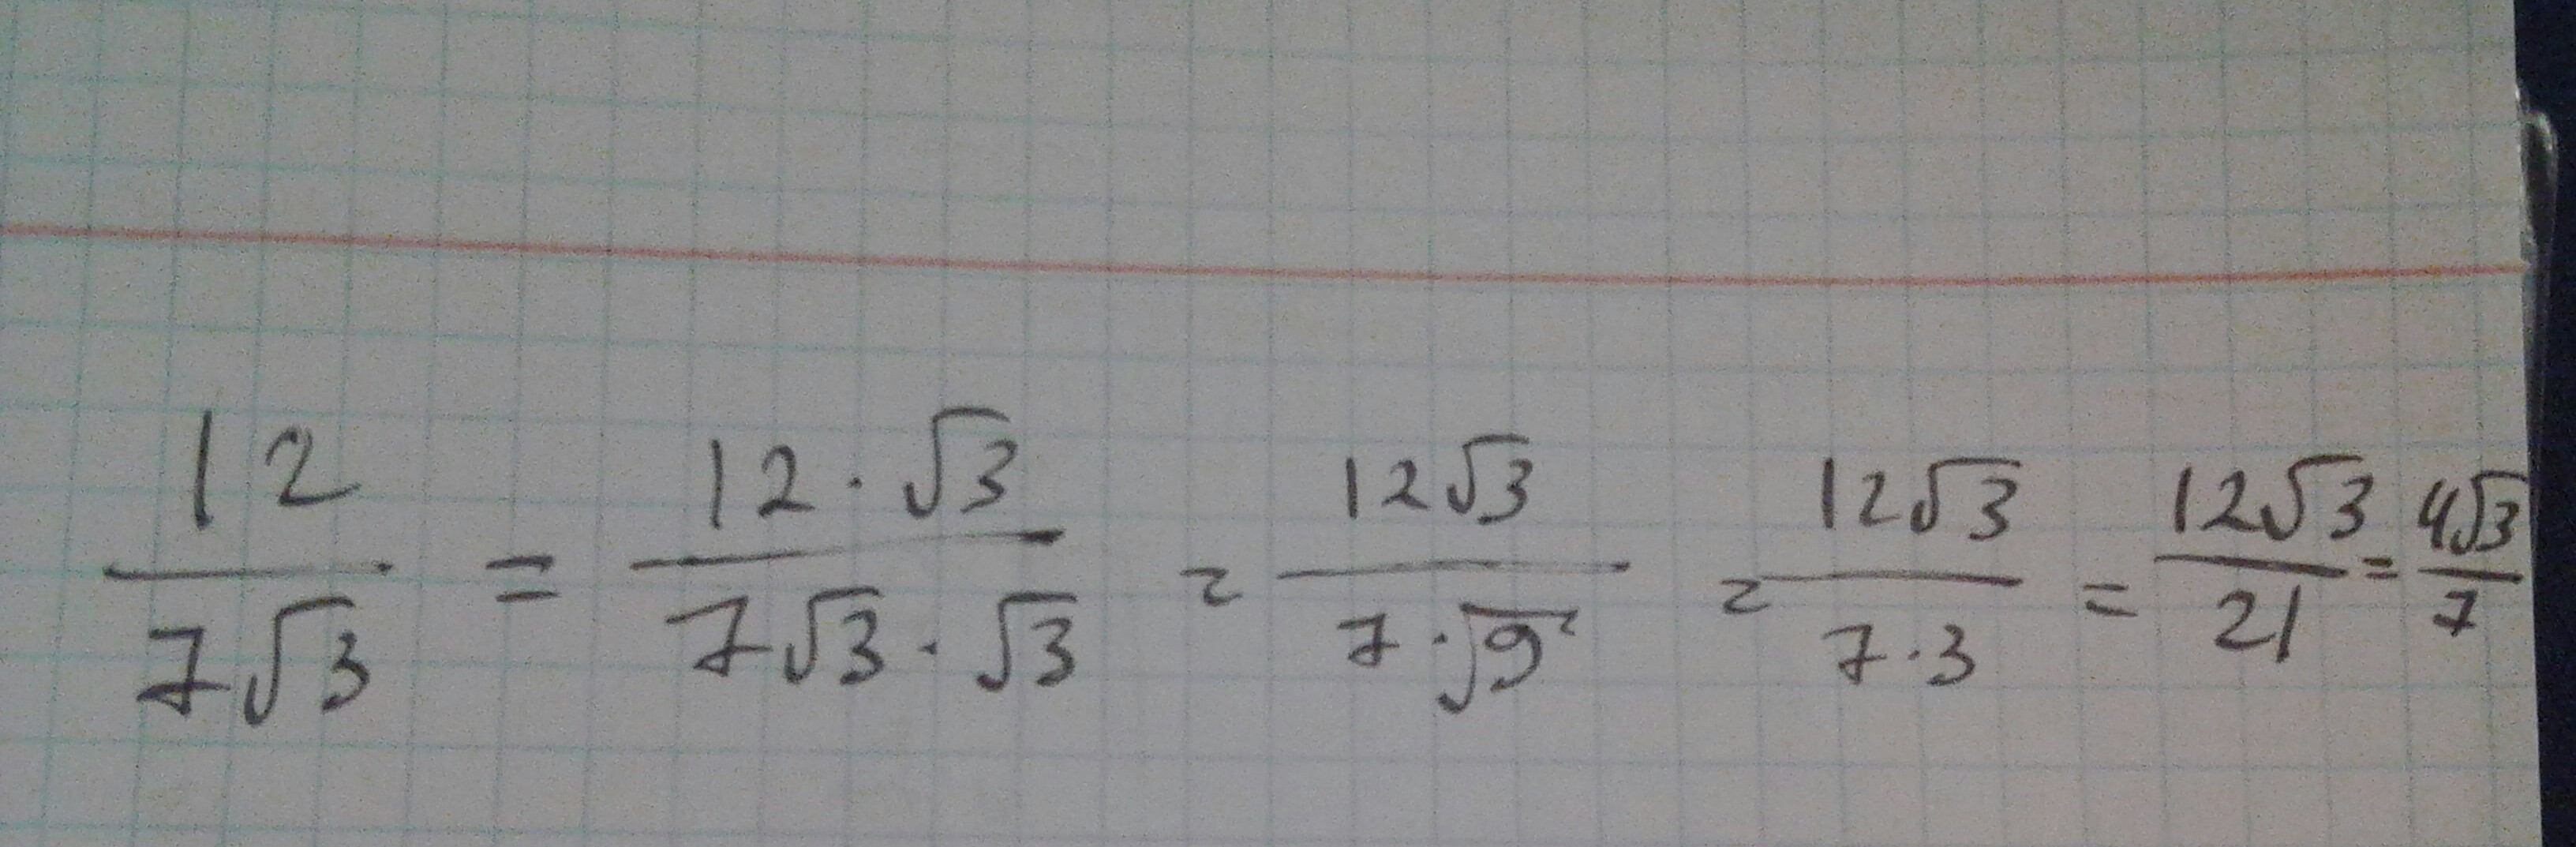 12/(7√3) = (12·√3)/(7√3·√3) = (12√3)/(7·√9) = (12√3)/(7·3) = (12√3)/21 = (4√3)/7